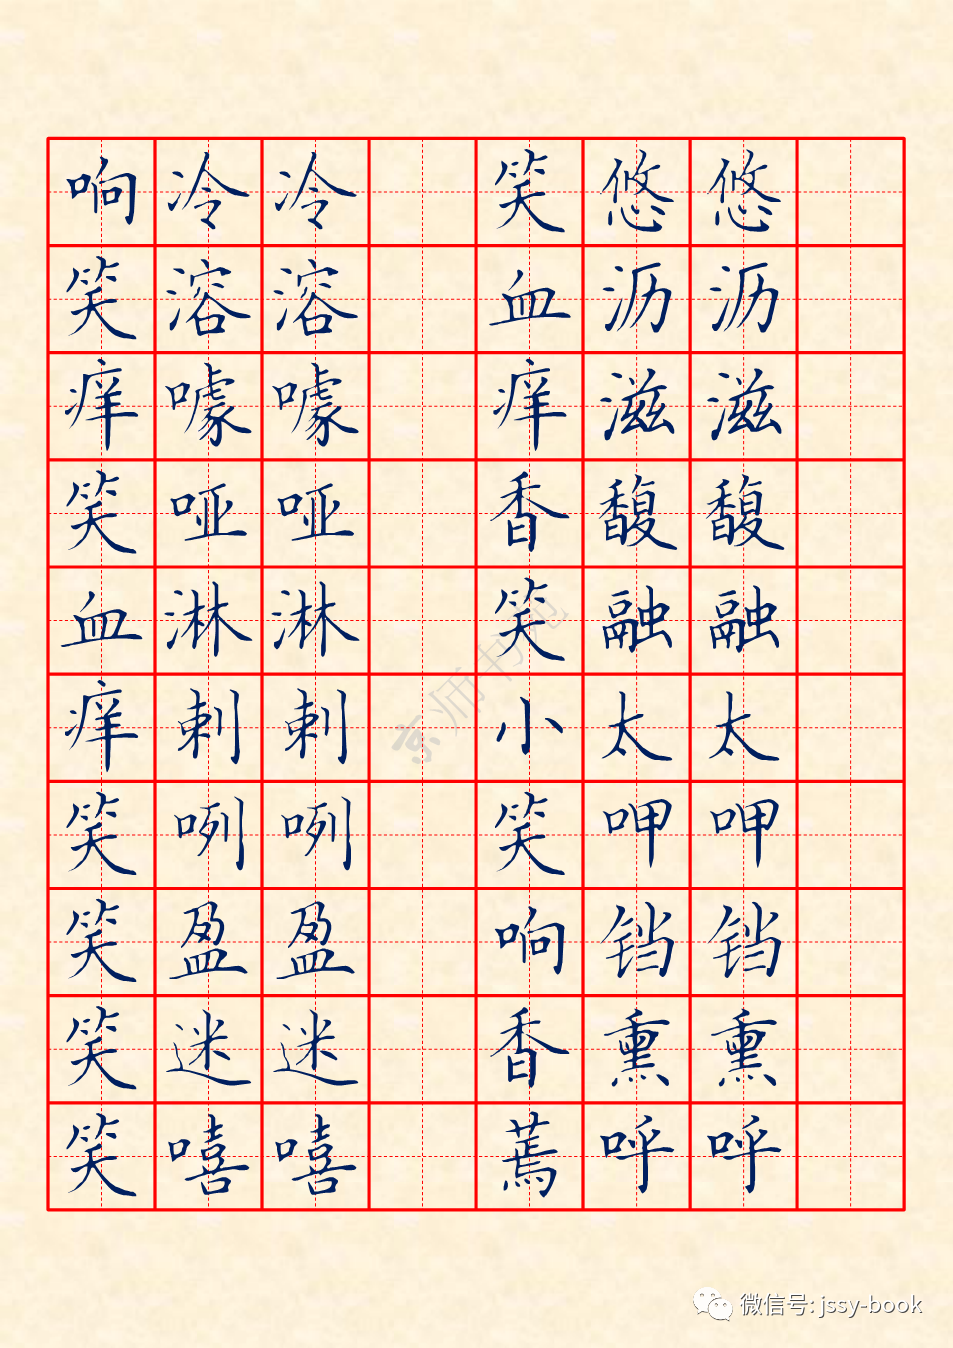 响冷冷 笑悠悠
笑溶溶 血沥沥
痒噱噱 痒滋滋
笑哑哑 香馥馥
血淋淋 笑融融
痒刺刺 小太太
笑咧咧 笑呷呷
笑盈盈 响铛铛
笑迷迷 香熏熏
笑嘻嘻 蔫呼呼
京师书苑
微信号: jssy-book